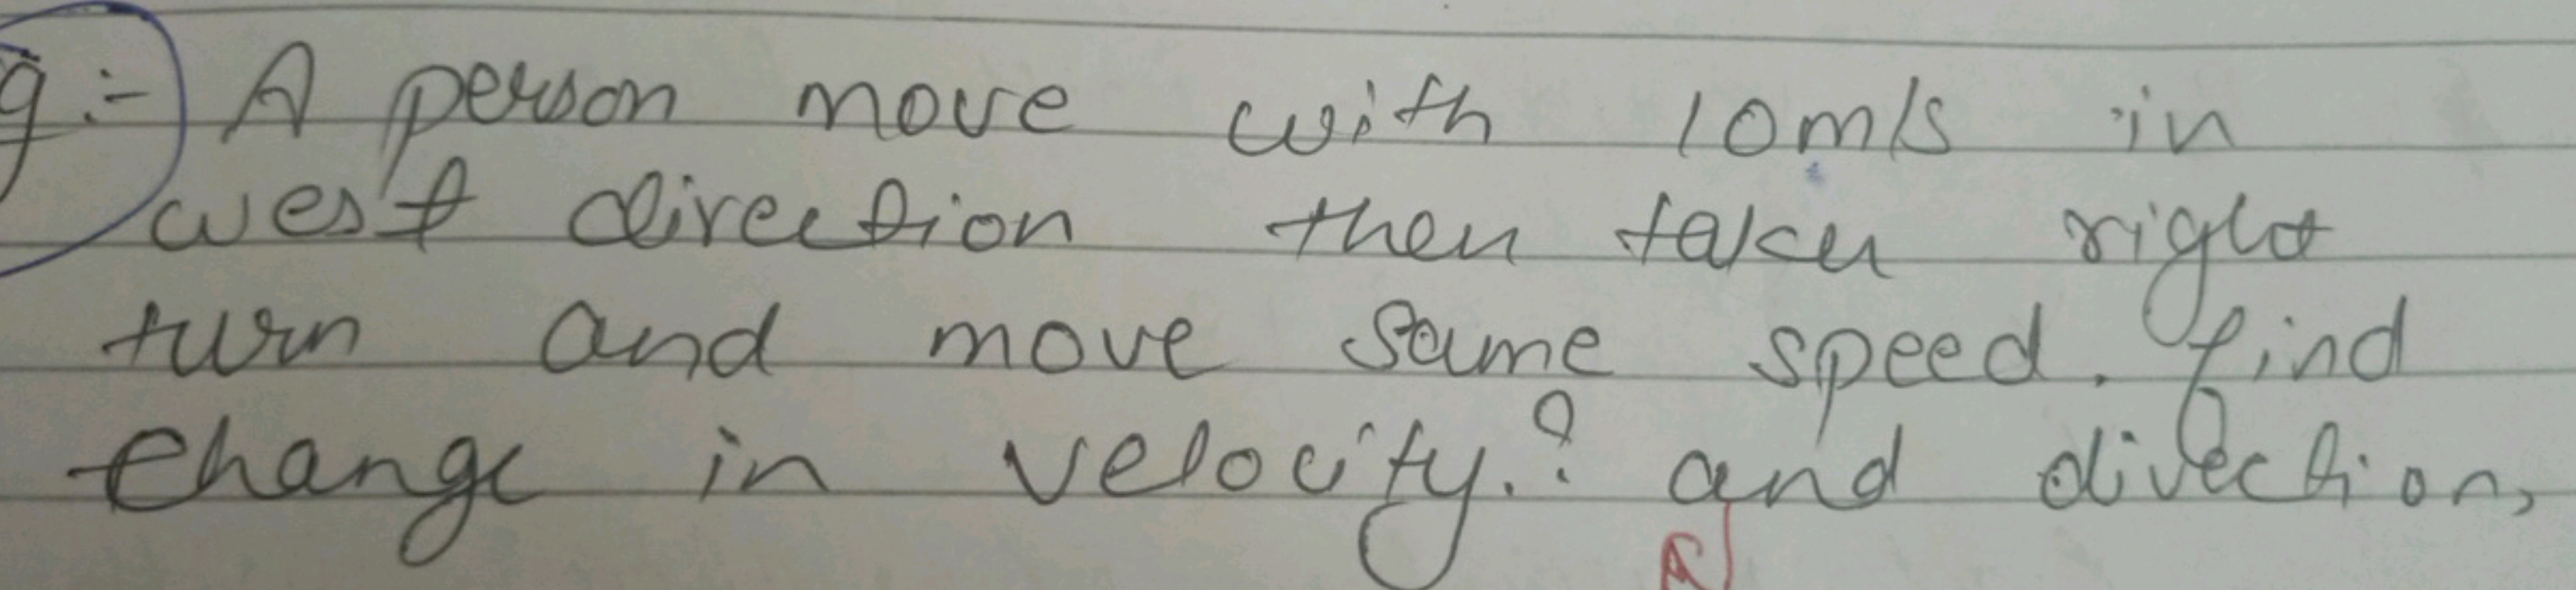 g:- A person move with 10m/s in
west direction then taken right
turn and move same speed. find
change in velocity.? and direction,